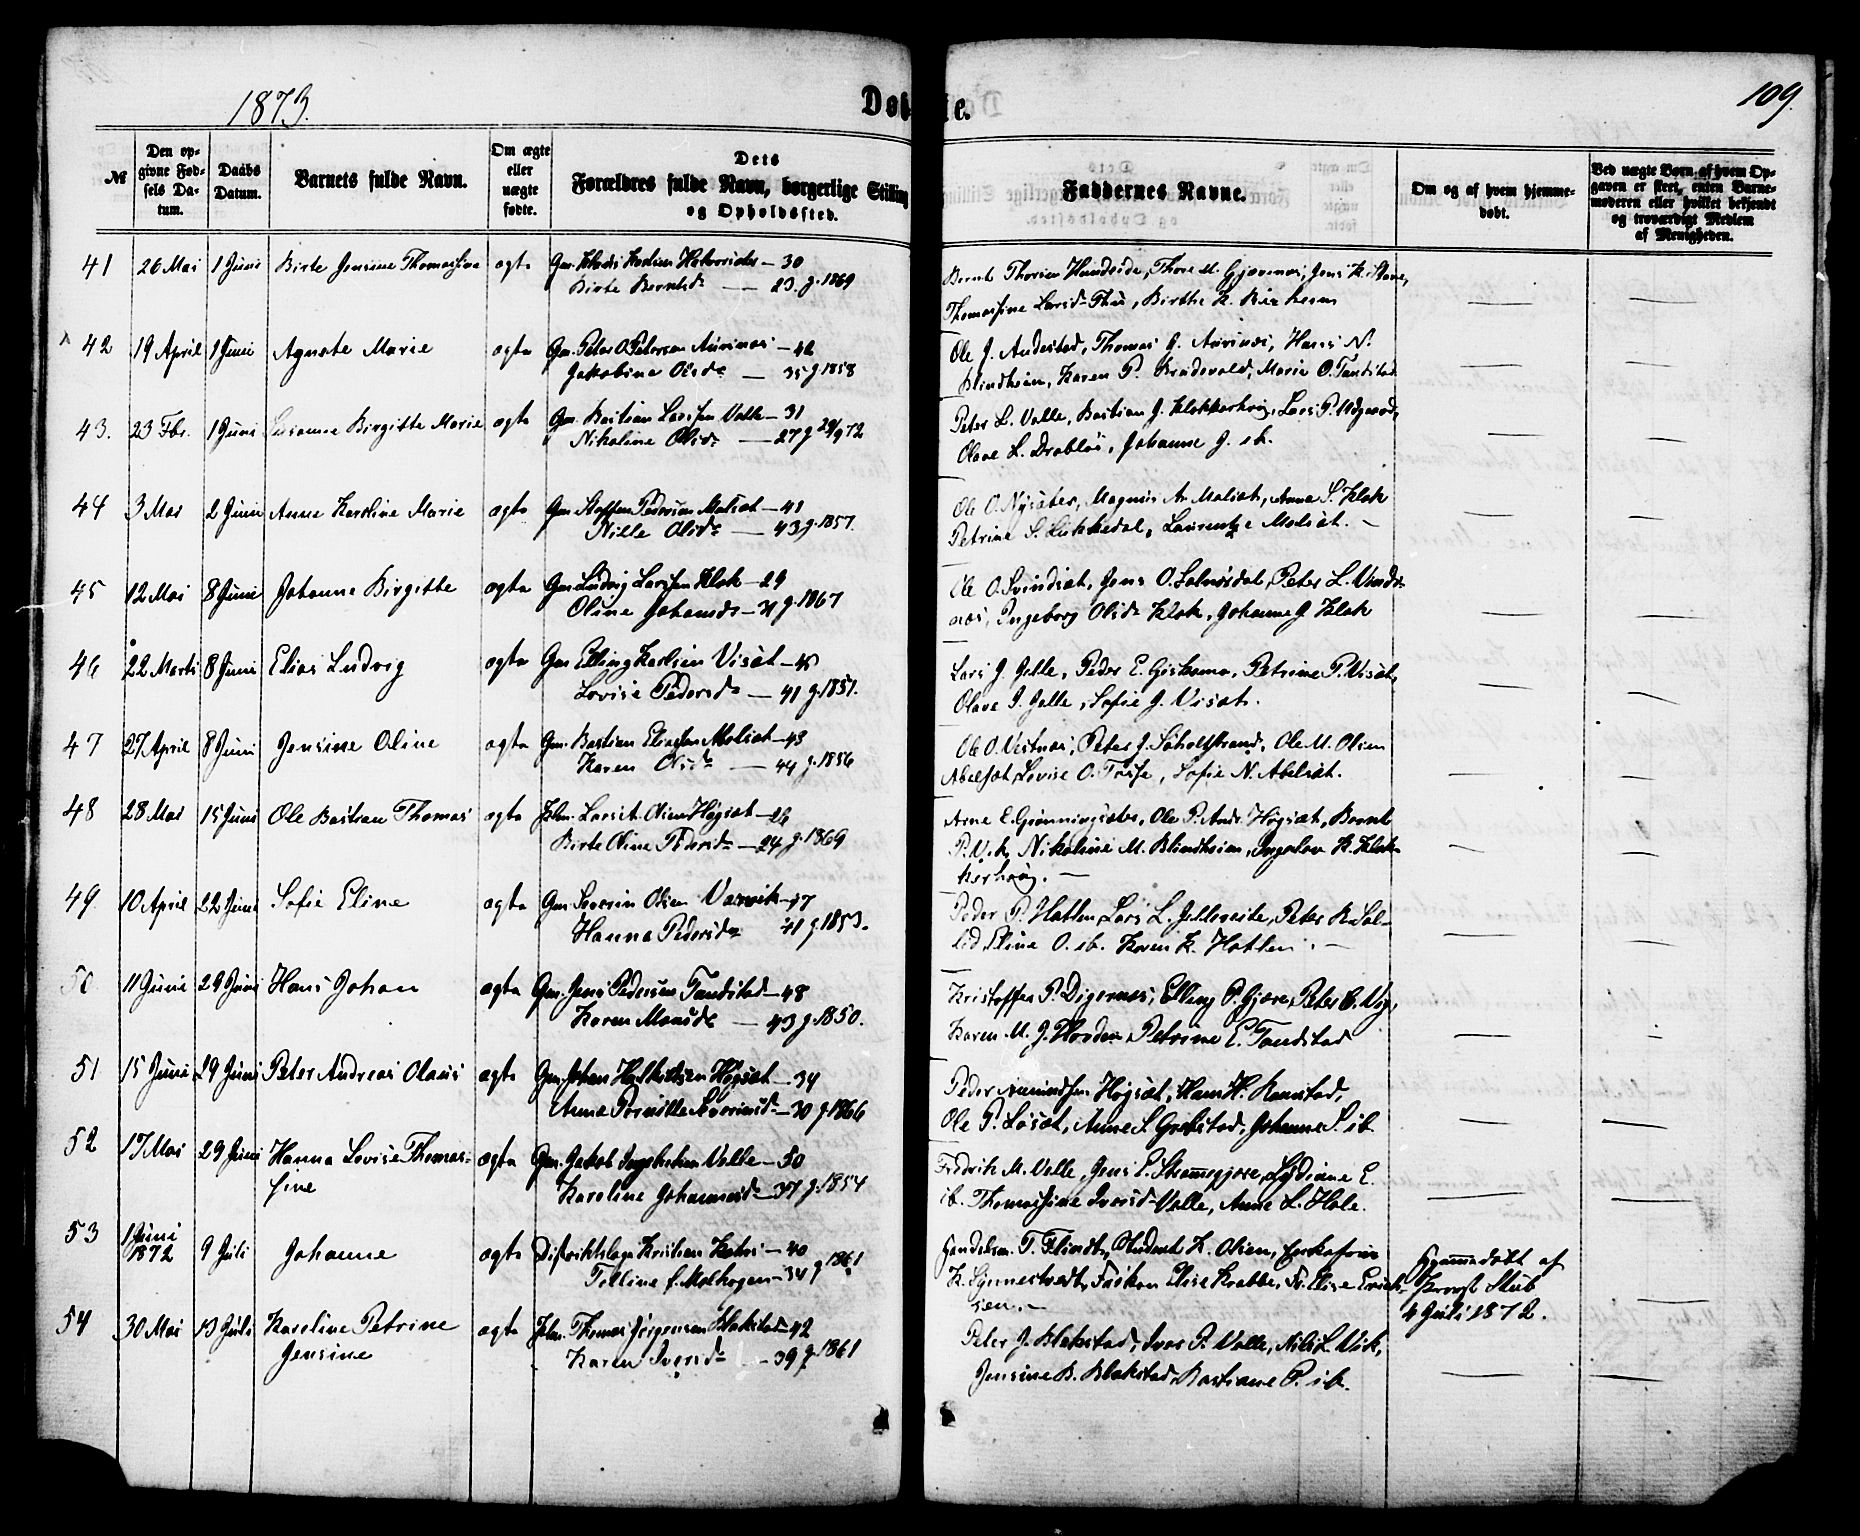 1873.
Døbte.
109.
№
Den opgivne Fødsels Datum.
Daabs Datum.
Barnets fulde Navn.
Om ægte eller uægte fødte.
Dets Forældres fulde Navn, borgerlige Stilling og Opholdssted.
Faddernes Navne.
Om og af hvem hjemmedøbt.
Ved uægte Børn af hvem Opgaven er skeet, enten Barnemoderen eller hvilket bekjendt og troværdigt Medlem af Menigheden.
41 26 Mai 1 Juni Birte Jensine Thomasine ægte Gm. Karlsen – 30
Birte Berntsdr – 23. g. 1869
Bernt Thorsen Hundeide, Thore M. Gjærmæs, Jens K.
Thomasine Larsdr Thu, Birthe K.
42 19 April 1 Juni Agnete Marie ægte Gm. Peter O. Petersen Aurenæs – 42
Jakobine Olsdr – 35 g. 1858
Ole J. Andestad, Thomas O. Aurenæs, Hans N.
Blindheim, Karen P. Brudevold, Marie O. Tandstad
43. 23 Fbr. 1 Juni Susanne Birgitte Marie ægte Gm. Bastian Larssen Valle – 31
Nikoline Olsdr – 27 g 29/9 72
Peter L. Valle, Bastian J. Klokkerhoug, Lars P.
Olave L. Drabløs, Johanne J. ib.
44 3 Mai 2 Juni Anne Karoline Marie ægte Gm. Steffen Pedersen Melsæt – 41
Nille Olsdr – 43 g. 1857.
Ole O. Nysæter, Magnus A. Melsæt, Anne S. Klok
Petrine S. Lukkedal, Laurentze Melsæt. –
45 12 Mai 8 Juni Johanne Birgitte ægte Gm. Ludvig Larssen Klok – 29
Oline Johansdr – 31 g. 1867
Ole O. Svindsæt, Jens O. Solnørdal, Peter L.
næs, Ingeborg Olsdr Klok, Johanne J. Klok
46 22 Marts 8 Juni Elias Ludvig ægte Gm. Elling Karlsen Visæt – 45
Lovise Pedersdr – 41 g. 1851.
Lars J. Gjelle, Peder E. Giskemo, Petrine P. Visæt,
Olave J. Gjelle, Sofie J. Visæt.
47 27 April 8 Juni Jensine Oline ægte Gm. Bastian Eliassen Melsæt – 43
Karen Olsdr – 44 g. 1856
Ole O. Vestnæs, Peter J. Søholtstrand, Ole M. Olsen
Abelsæt, Lovise O. Tosse, Sofie N. Abelsæt.
48 28 Mai 15 Juni Ole Bastian Thomas ægte Hm. Lars A. Olsen Høgsæt – 29
Birte Oline Pedersdr – 24 g. 1869
Arne E. Grønningsæter, Ole P. Høgsæt, Bernt
P. Vik, Nikoline M. Blindheim, K. Klok-
kerhoug. –
49 10 April 22 Juni Sofie Eline ægte Gm. Severin Olsen Varvik – 47
Hanna Pedersdr 41 g. 1853.
Peder P. Hatlen, Lars L. Gjelleveite, Peter K. Sol-
lid, Eline O. ib. Karen K. Hatlen. –
50 11 Juni 29 Juni Hans Johan ægte Gm. Jens Pedersen Tandstad – 48
Karen Monsdr – 43 g. 1850.
Kristoffer P. Digernæs, Elling P. Gjære, Peter C. Vig,
Karen M. J. Hovden, Petrine E. Tandstad
51 15 Juni 29 Juni Peter Andreas Olaus ægte Gm. Johan Høgsæt – 34
Anne Pernille Severinsdr – 30 g. 1866
Peder Amundsen Høgsæt, Hans H. Ramstad,
Ole P. Løsæt, Anne S. Grebstad, Johanne S. ib.
52 17 Mai 29 Juni Hanna Lovise Thomas- ægte Gm. Jakob Valle – 50
sine Karoline Johannesdr – 37 g. 1854
Fredrik M. Valle, Jens P. Strømmegjære, Lydiane E.
ib. Thomassine Iversdr Valle, Anne L. Hole.
53 1 Juni 1872 9 Juli Johanne ægte Distriktslæge Kristian – 40
f. – 34 g. 1861
Handelsm. T. Flindt, Student K. Olsen,
K. Frøken Elise Krabbe, Fr. Elise Erich-
sen. –
Hjemmedøbt af
Provst Stub
4 Juli 1872.
54 30 Mai 13 Juli Karoline Petrine ægte Hm. Thomas Jørgensen Blakstad – 42
Jensine Karen Iversdr – 39 g. 1861
Peter J. Blakstad, Iver P. Valle, Nils L. Vik,
Jensine B. Blakstad, Bastiane P. ib.